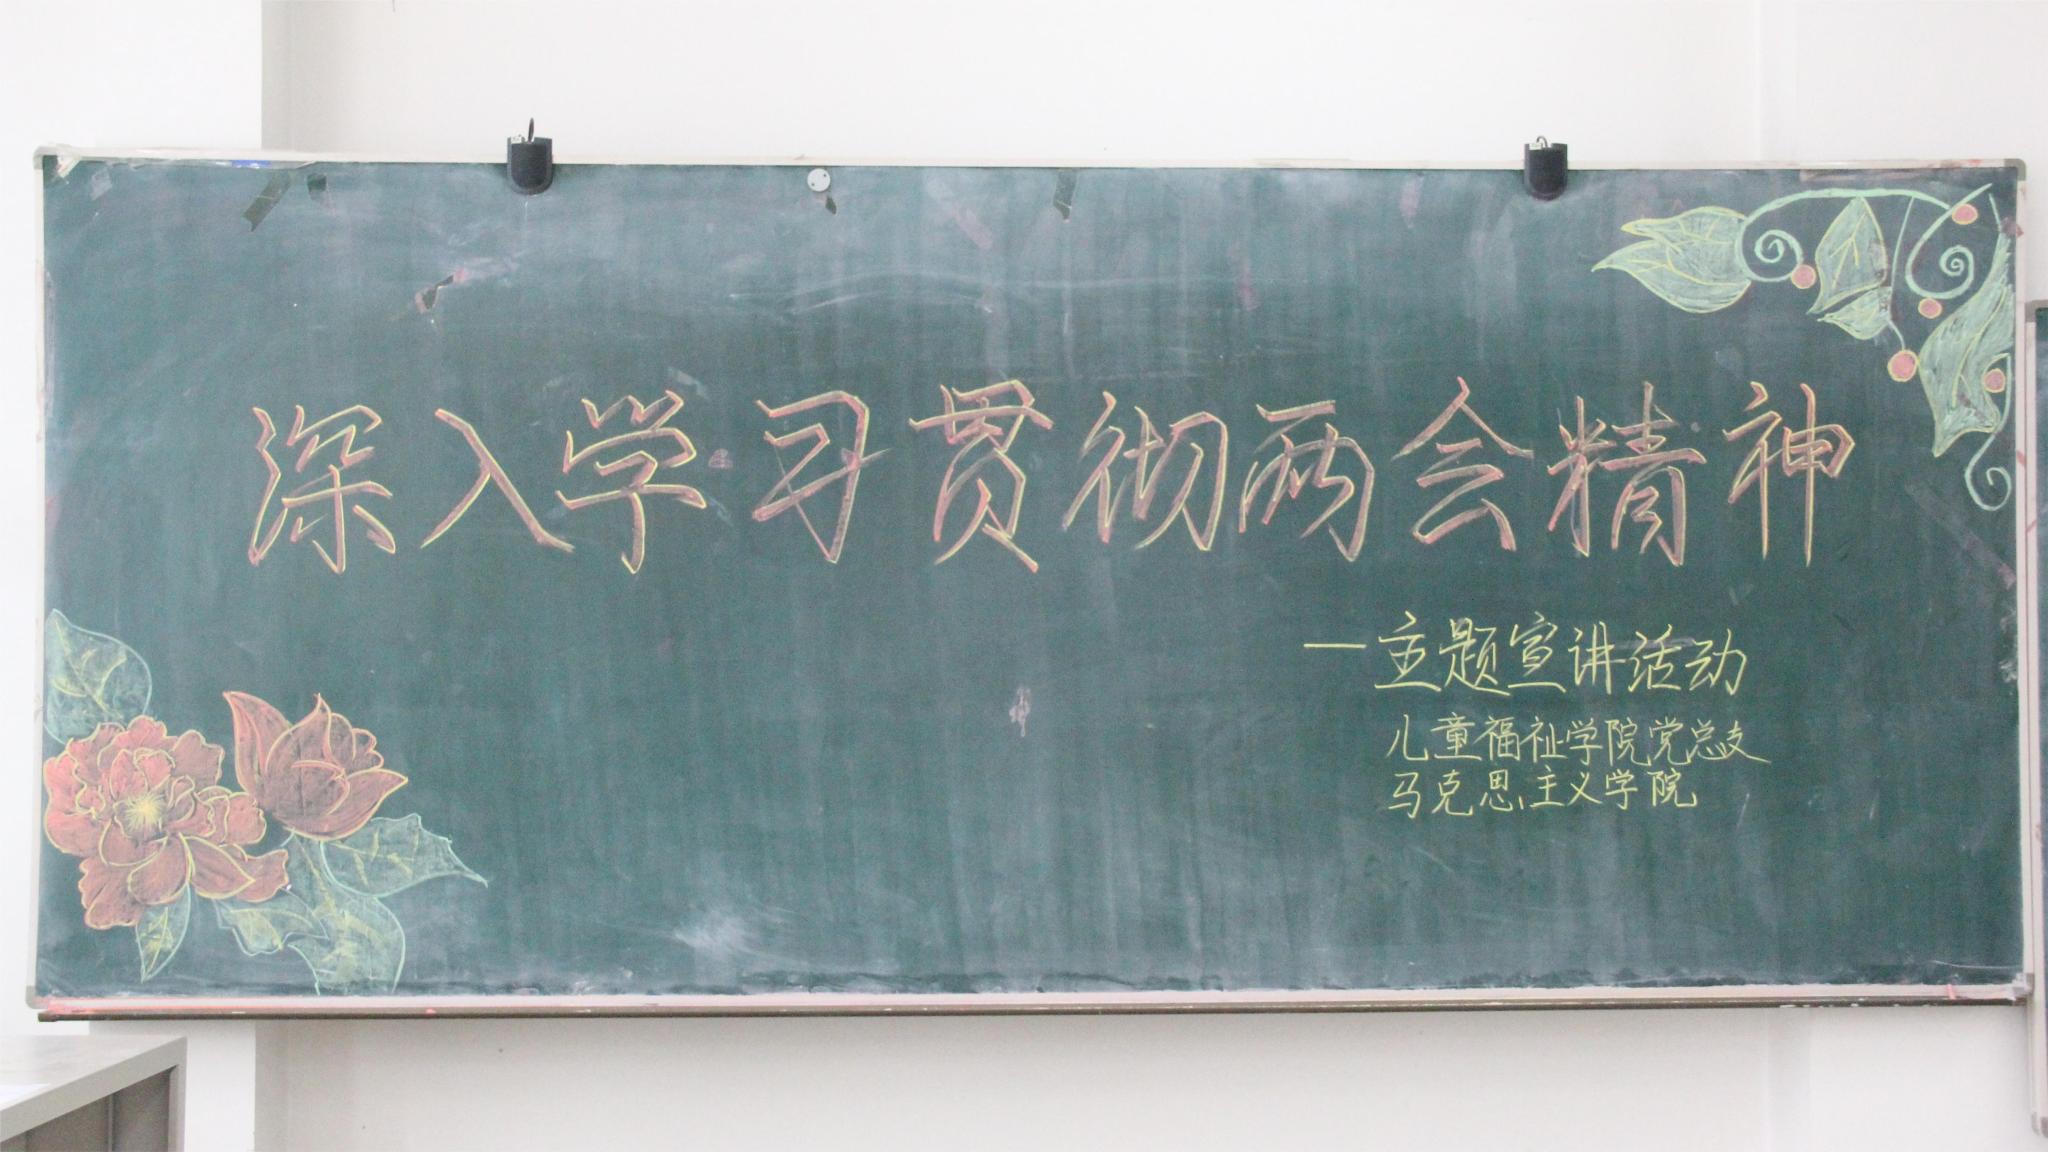 深入学习贯彻两会精神
—主题宣讲活动
儿童福祉学院党总支
马克思主义学院